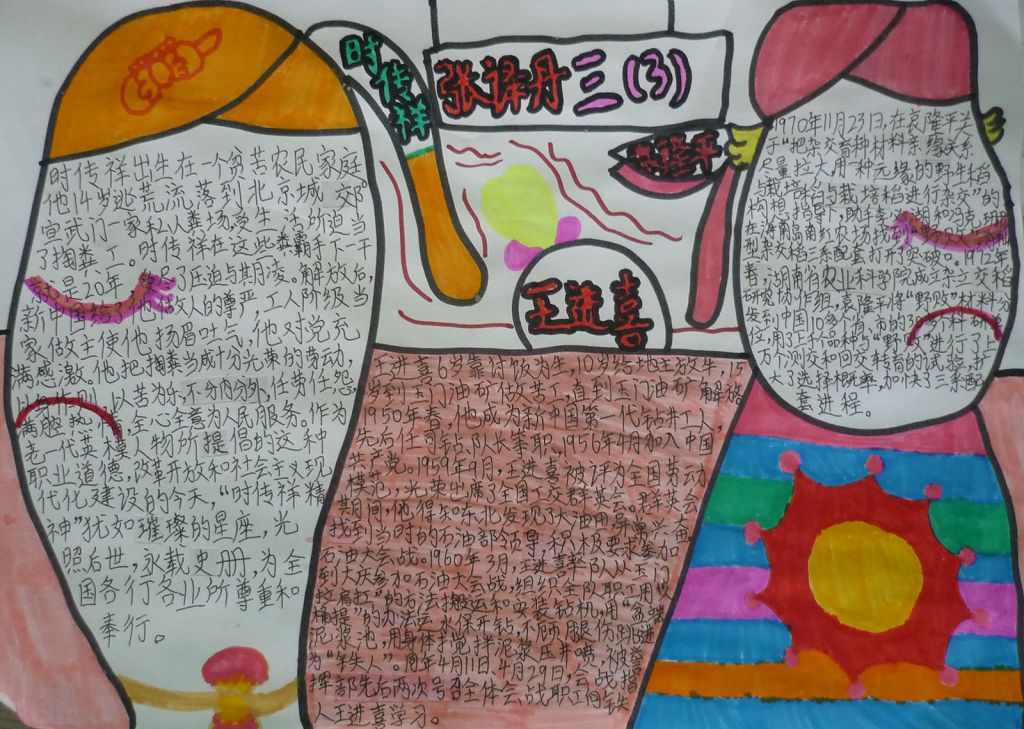 时传祥
张译丹 三(3)
袁隆平
王进喜
时传祥出生在一个贫苦农民家庭
他14岁逃荒流落到北京城郊。
宣武门一家私人粪场,受生活所迫当
了掏粪工。时传祥在这些粪霸手下一干
就是20年,受了压迫与欺凌。解放后,
新中国给了他做人的尊严,工人阶级当
家做主使他扬眉吐气,他对党充
满感激。他把掏粪当成十分光荣的劳动,
以苦为乐,不分内外,任劳任怨
满腔热忱,全心全意为人民服务。作为
老一代英模人物所提倡的这种
职业道德,改革开放和社会主义现
代化建设的今天,“时传祥精
神”犹如璀璨的星座,光
照后世,永载史册,为全
国各行各业所尊重和
奉行。
王进喜6岁靠讨饭为生,10岁给地主放牛,15
岁到玉门油矿做苦工,直到玉门油矿解放
1950年春,他成为新中国第一代钻井工人,
先后任司钻、队长等职.1956年4月加入中国
共产党。1959年9月,王进喜被评为全国劳动
模范,光荣出席了全国工交群英会。群英会
期间,他得知东北发现了大油田,异常兴奋,
找到当时的石油部领导,积极要求参加
石油大会战。1960年3月,王进喜率队从玉门
到大庆参加石油大会战,组织全队职工用“人
拉肩扛”的方法搬运和安装钻机,用“盆端
桶提”的办法运水保开钻,不顾腿伤跳进
泥浆池,用身体搅拌泥浆压井喷,被誉
为“铁人”。同年4月11日、4月29日,会战指
挥部先后两次号召全体会战职工向铁
人王进喜学习。
1970年11月23日,在袁隆平关
于“把杂交育种材料亲缘关系
量拉大,用一种元缘的野生稻
与栽培稻进行杂交”的
在海南岛南红农场找到
型杂交稻三系配套打开了突破。1972年
春,湖南省农业科学院成立杂交稻
研究协作组,袁隆平将“野败”材料分
发到中国10多个省、市的30多个科研单
位,用了上千个品种与“野败”进行了上
万个测交和回交转育的试验,扩
大了选择概率,加快了三系配
套进程。